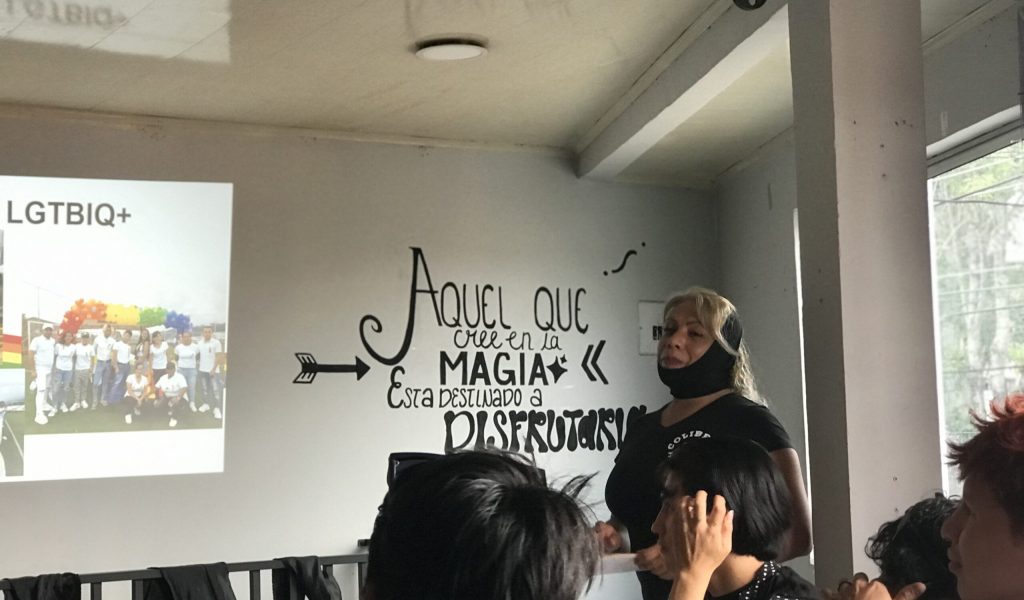 LGTBIQ+
AQUEL QUE
cree en la
MAGIA
Esta DESTINADO a
DISFRUTARLA